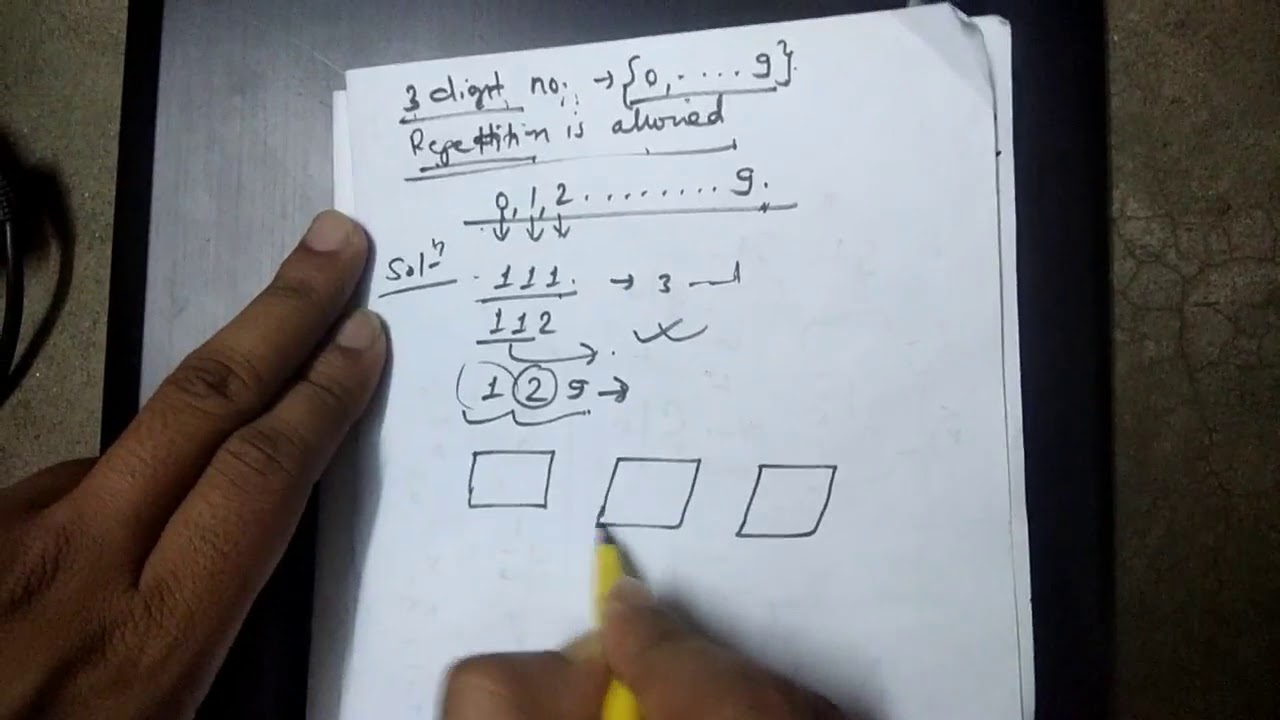 3 digit no. → {0, .... 9}.
Repetition is allowed
0, 1, 2 ......... 9.
Solⁿ 111. → 3
112
1 2 9 →